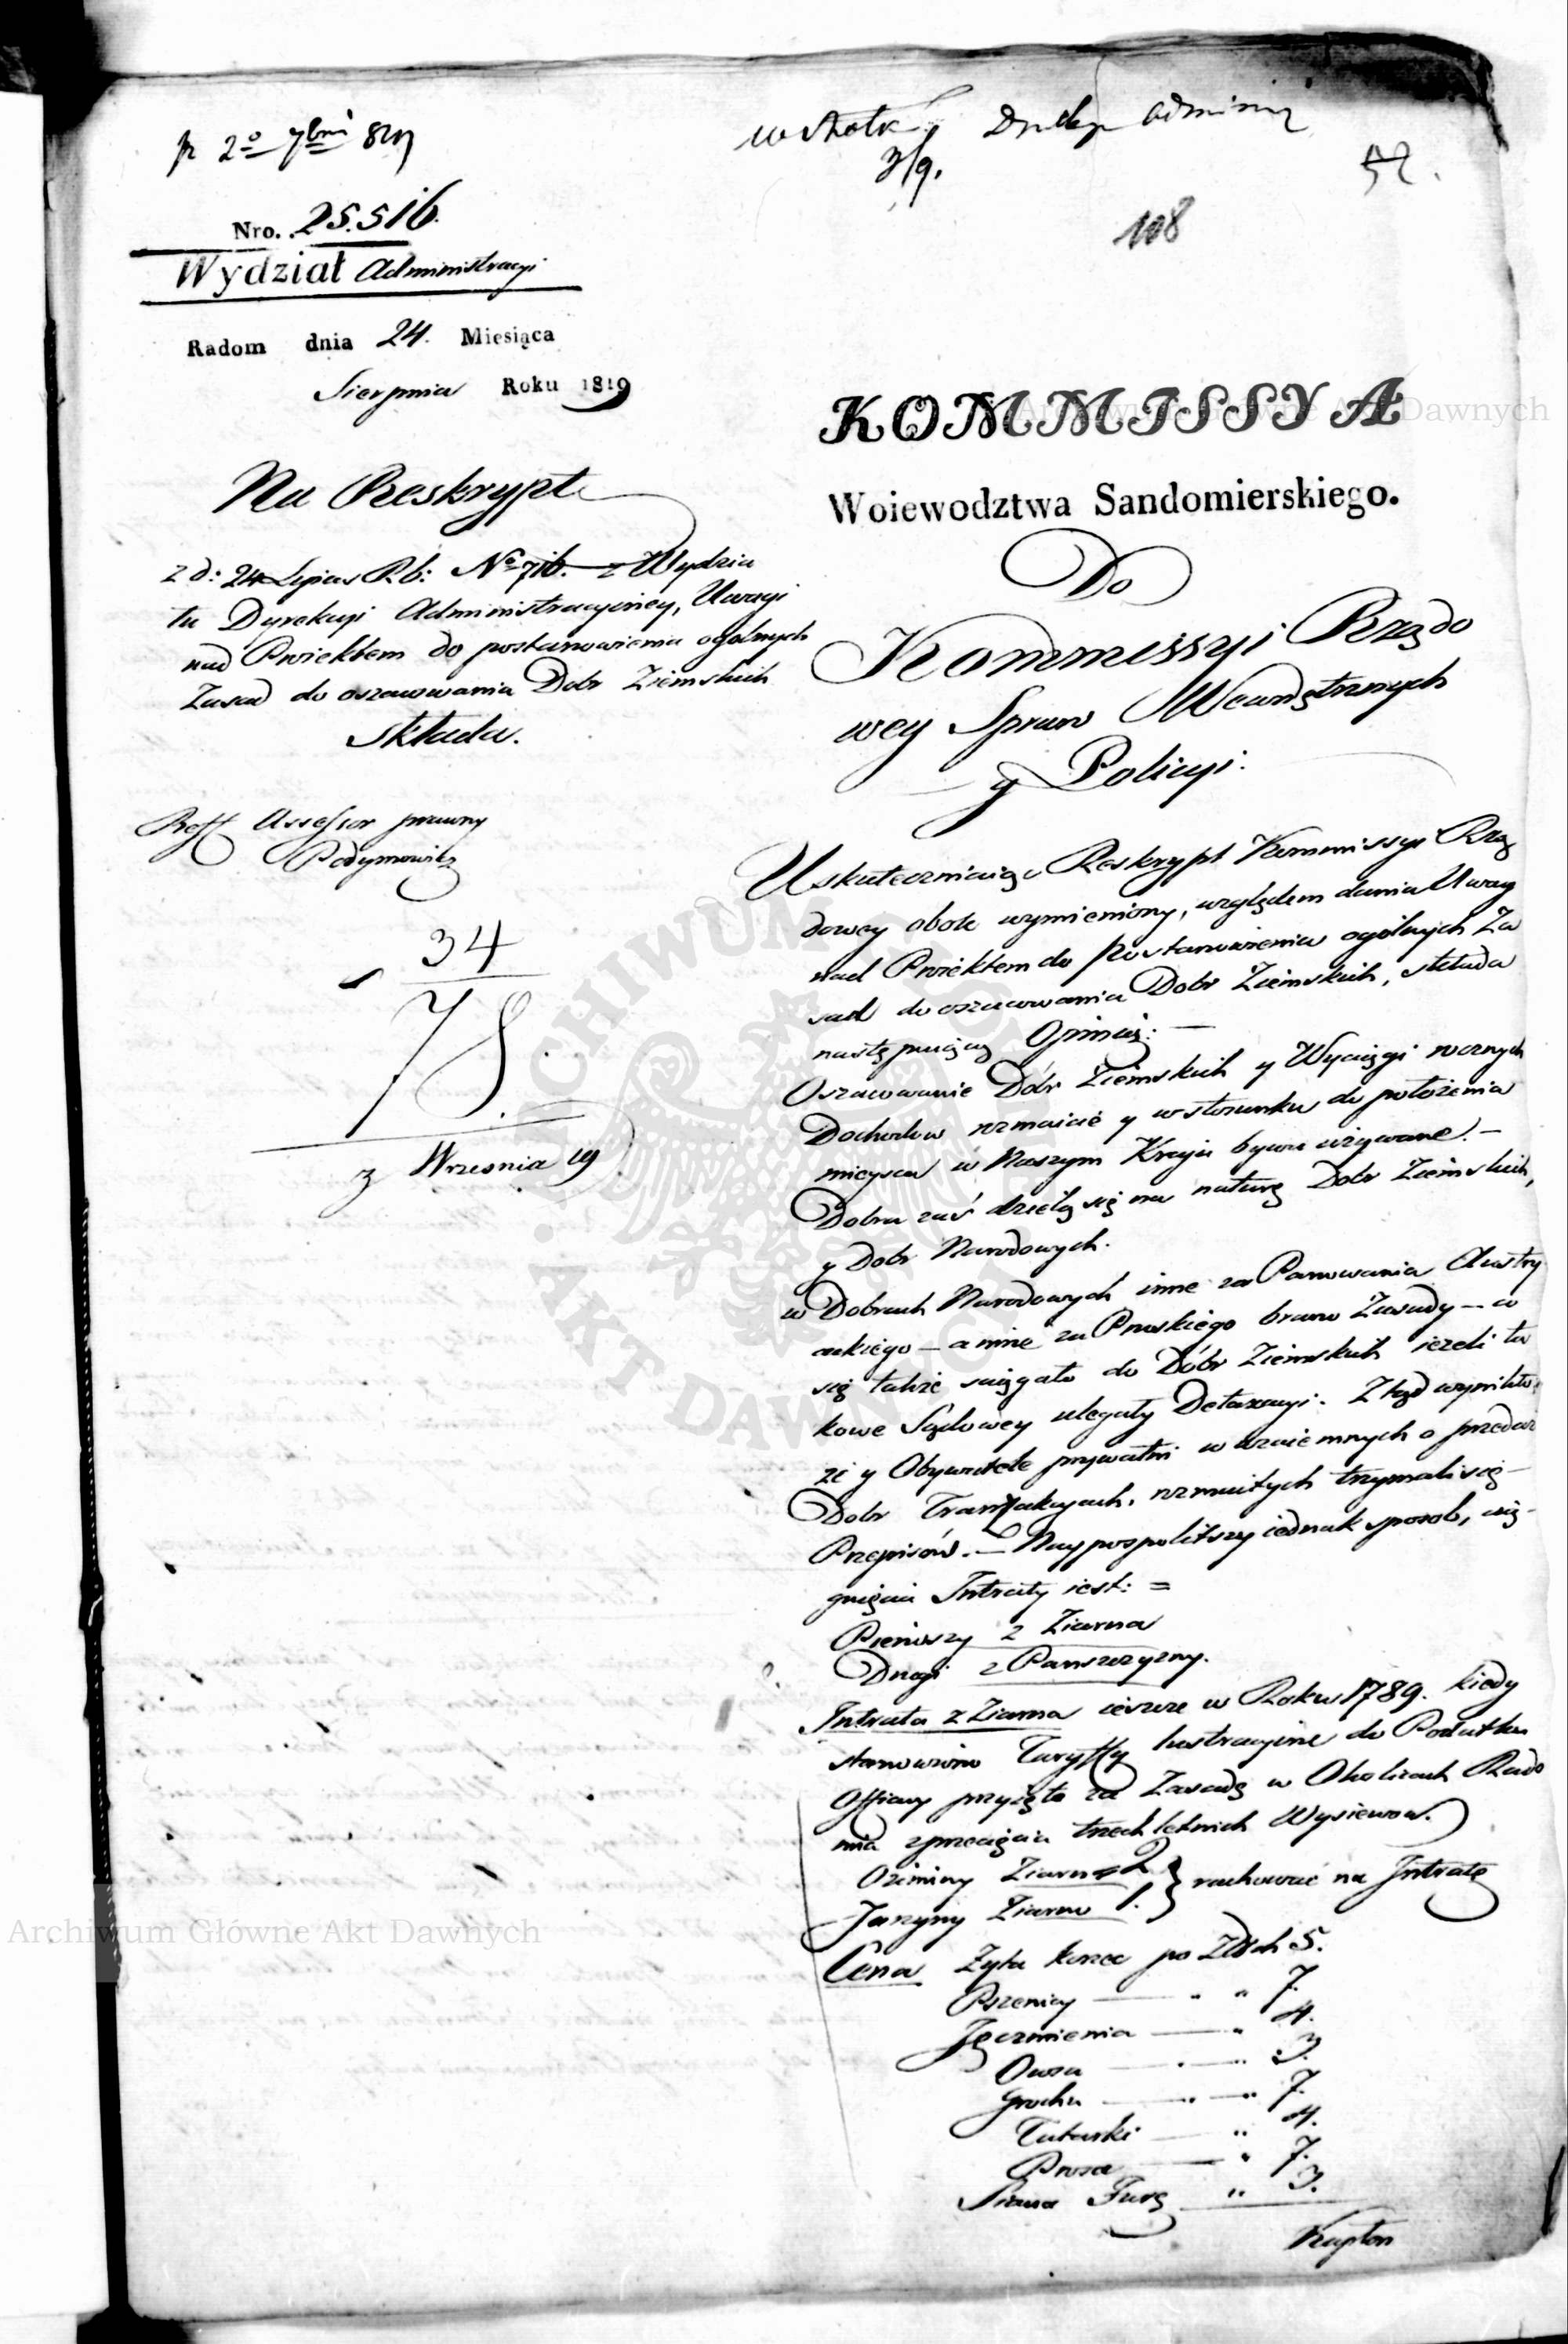 pr 2º 7bris 819
3/9.
52.
108
Nro. 25.516.
Wydział Administracyi
Radom dnia 24. Miesiąca
Sierpnia Roku 1819
Na Reskrypt
z d: 24 Lipca R. b: No 716. z Wydzia
łu Dyrekcyi Administracyiney, Uwagi
nad Proiektem do postanowienia ogolnych
Zasad do oszacowania Dobr Ziemskich
składa.
Assessor prawny
34
3 Września 19
KOMMISSYA
Woiewodztwa Sandomierskiego.
Do
Kommissyi Rządo
wey Spraw Wewnętrznych
y Policyi.
Uskuteczniaiąc Reskrypt Kommissyi Rzą
dowey obok wymieniony, względem dania Uwag
nad Proiektem do Postanowienia ogólnych Za
sad do oszacowania Dobr Ziemskich, składa
następuiącą Opiniią: —
Oszacowanie Dóbr Ziemskich y Wyciągi rocznych
Dochodow rozmaicie y w stosunku do położenia
mieysca w Naszym Kraju bywa używane. —
Dobra zaś dzielą się na naturę Dobr Ziemskich,
y Dobr Narodowych.
w Dobrach Narodowych inne za Panowania Austry
ackiego — a inne za Pruskiego brano Zasady — co
się także sciągało do Dóbr Ziemskich ieżeli ta
kowe Sądowey ulegały Detaxacyi. Ztąd wynikło,
że y Obywatele prywatni w wzaiemnych o przedaż
Dobr Tranzakcyach, rozmaitych trzymali się —
Przepisów. — Naypospolitszy iednak sposob, cią-
gnięcia Intraty iest: =
Pierwszy z Ziarna
Drugi z Panszczyzny.
Intrata z Ziarna ieszcze w Roku 1789. kiedy
stanowiono Taryffy lustracyine do Podatku
Offiary przyięto za Zasadę w Okolicach Rado
mia z przecięcia trzechletnich Wysiewow.
Oziminy Ziarna 2
Jarzyny Ziarno 1. } rachować na Intratę
Cena Żyta korzec po Złotych 5.
Pszenicy — " " 7.
Jęczmienia — " 4.
Owsa — " — " 3.
Grochu — " — " 7.
Tatarki — " 4.
Prosa — " 7.
Siana Furę " 3.
Kapłon
Archiwum Główne Akt Dawnych
Archiwum Główne Akt Dawnych
ARCHIWUM GŁÓWNE
AKT DAWNYCH